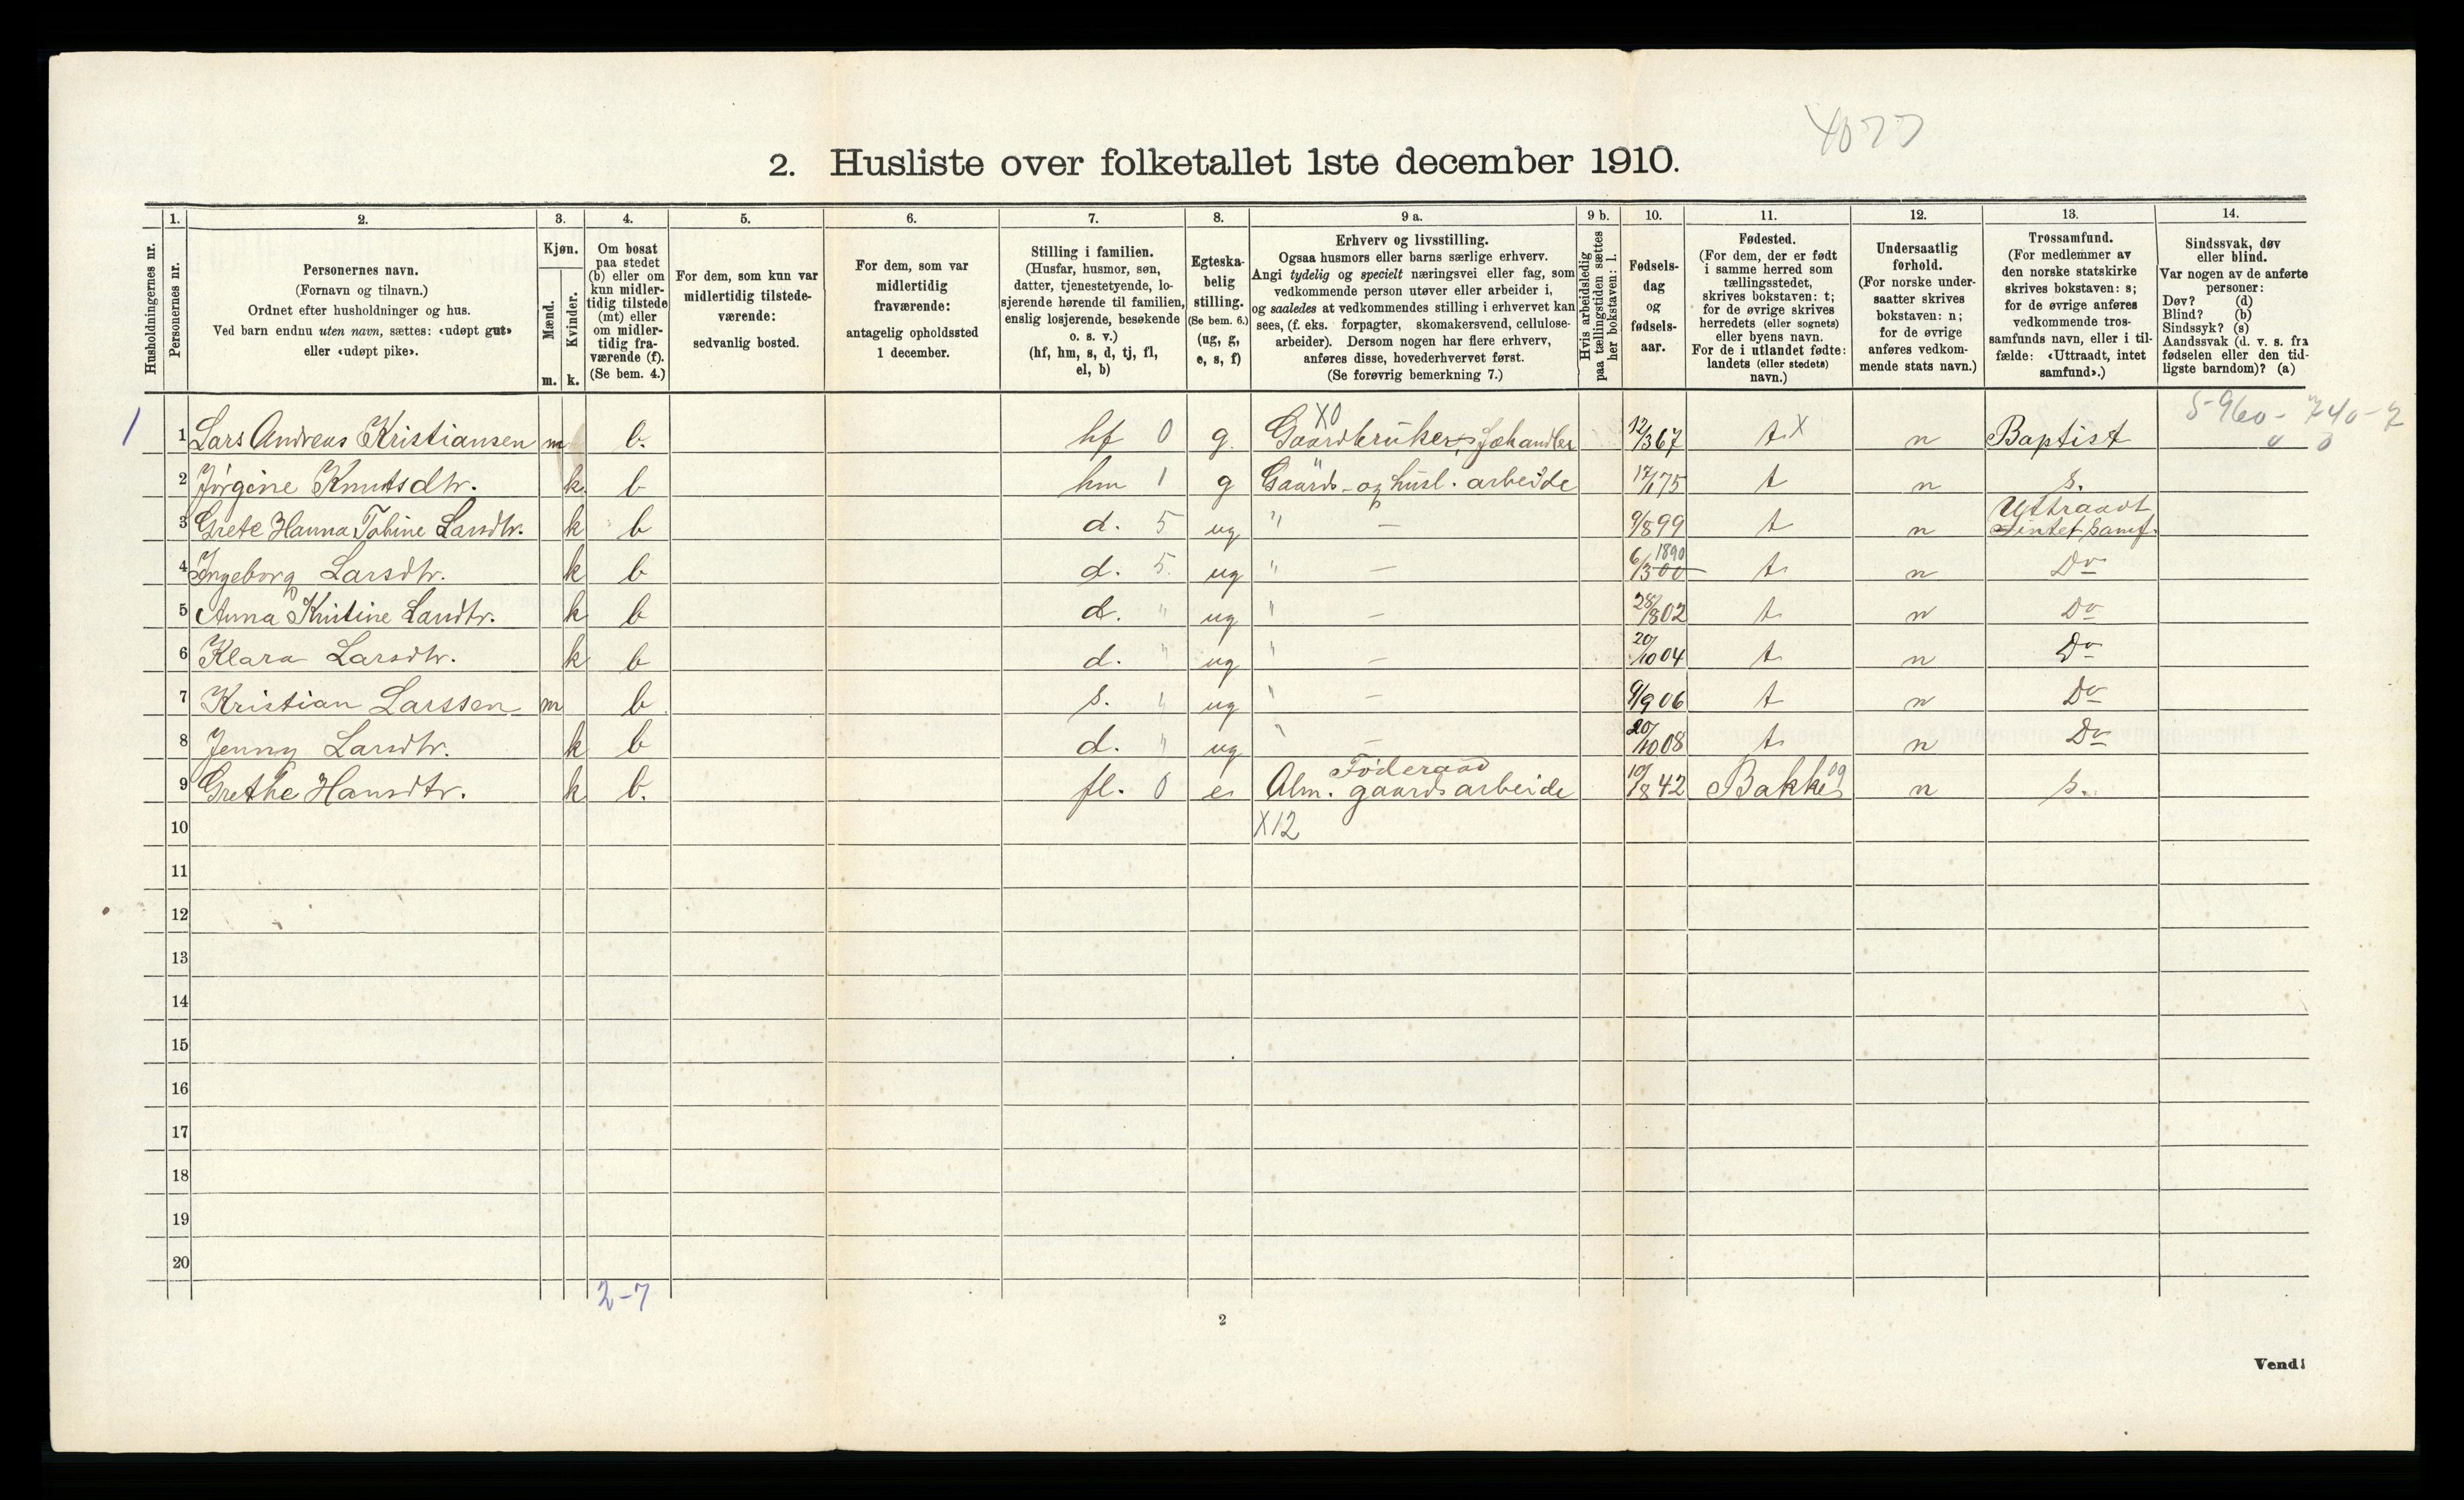 4077
2. Husliste over folketallet 1ste december 1910.
Husholdningernes nr.
1.
Personernes nr.
2.
Personernes navn.
(Fornavn og tilnavn.)
Ordnet efter husholdninger og hus.
Ved barn endnu uten navn, sættes: «udøpt gut»
eller «udøpt pike».
3.
Kjøn.
Mænd.
Kvinder.
m. k.
4.
Om bosat
paa stedet
(b) eller om
kun midler-
tidig tilstede
(mt) eller
om midler-
tidig fra-
værende (f).
(Se bem. 4.)
5.
For dem, som kun var
midlertidig tilstede-
værende:
sedvanlig bosted.
6.
For dem, som var
midlertidig
fraværende:
antagelig opholdssted
1 december.
7.
Stilling i familien.
(Husfar, husmor, søn,
datter, tjenestetyende, lo-
sjerende hørende til familien,
enslig losjerende, besøkende
o. s. v.)
(hf, hm, s, d, tj, fl,
el, b)
8.
Egteska-
belig
stilling.
(Se bem. 6.)
(ug, g,
e, s, f)
9 a.
Erhverv og livsstilling.
Ogsaa husmors eller barns særlige erhverv.
Angi tydelig og specielt næringsvei eller fag, som
vedkommende person utøver eller arbeider i,
og saaledes at vedkommendes stilling i erhvervet kan
sees, (f. eks. forpagter, skomakersvend, cellulose-
arbeider). Dersom nogen har flere erhverv,
anføres disse, hovederhvervet først.
(Se forøvrig bemerkning 7.)
9 b.
Hvis arbeidsledig
paa tællingstiden sættes
her bokstaven: l.
10.
Fødsels-
dag
og
fødsels-
aar.
11.
Fødested.
(For dem, der er født
i samme herred som
tællingsstedet,
skrives bokstaven: t;
for de øvrige skrives
herredets (eller sognets)
eller byens navn.
For de i utlandet fødte:
landets (eller stedets)
navn.)
12.
Undersaatlig
forhold.
(For norske under-
saatter skrives
bokstaven: n;
for de øvrige
anføres vedkom-
mende stats navn.)
13.
Trossamfund.
(For medlemmer av
den norske statskirke
skrives bokstaven: s;
for de øvrige anføres
vedkommende tros-
samfunds navn, eller i til-
fælde: «Uttraadt, intet
samfund».)
14.
Sindssvak, døv
eller blind.
Var nogen av de anførte
personer:
Døv? (d)
Blind? (b)
Sindssyk? (s)
Aandssvak (d. v. s. fra
fødselen eller den tid-
ligste barndom)? (a)
X0
1 1 Lars Andreas Kristiansen m b. hf 0 g. Gaardbruker, fæhandler 12/3 67 t X n Baptist
2 Jørgine Knutsdtr. k. b hm 1 g Gaards- og husl. arbeide 17/1 75 t n s.
3 Grete Hanna Tobine Larsdtr. k b d. 5 ug " — 9/8 99 t n Uttraadt intet samf.
4 Ingeborg Larsdtr. k b d. 5. ug " — 6/3 00 1890 t. n Do
5 Anna Kristine Larsdtr. k b d. " ug " — 28/8 02 t. n Do
6 Klara Larsdtr. k b d. " ug " — 20/10 04 t. n Do
7 Kristian Larssen m b s. " ug " — 9/9 06 t n Do
8 Jenny Larsdtr. k b d. " ug " — 20/10 08 t. n Do
9 Grethe Hansdtr. k b. fl. 0 e Føderaad Alm. gaardsarbeide 10/8 42 Bakke 09 n s.
10 X12
11
12
13
14
15
16
17
18
19
20
2-7
2
Vend!